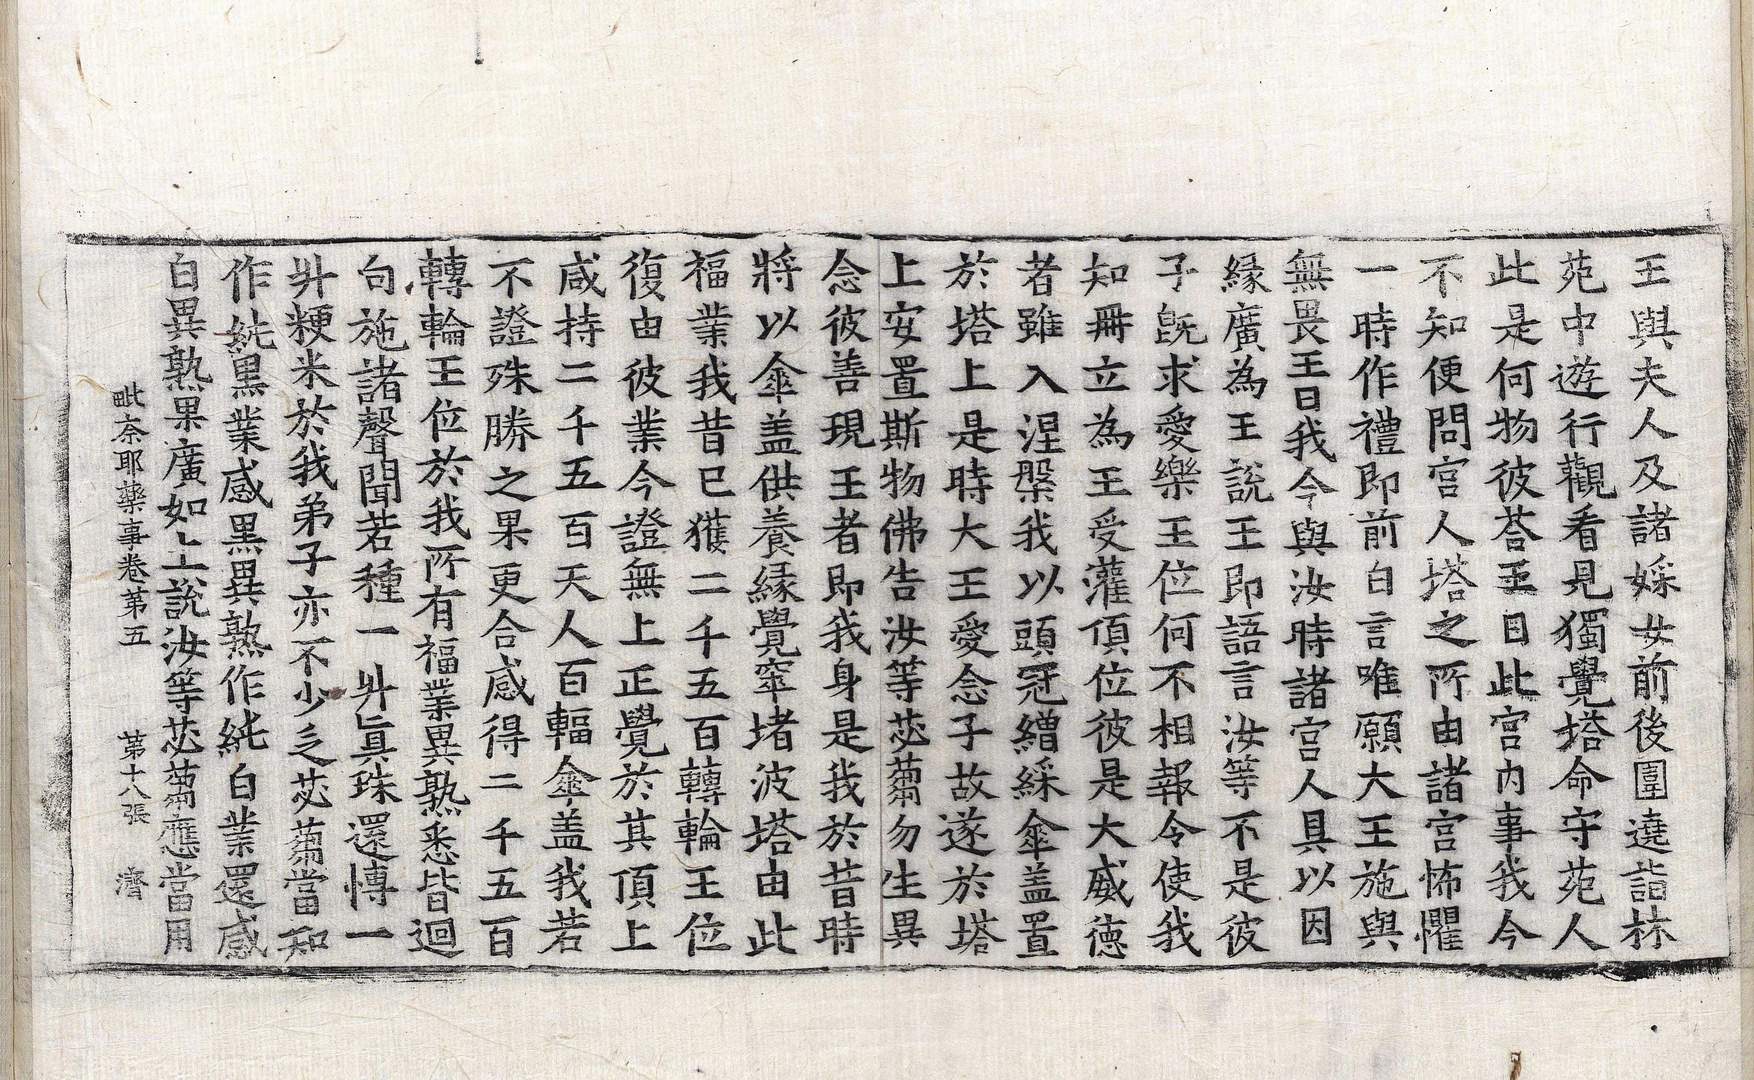 王與夫人及諸婇女前後圍遶詣林
苑中遊行觀看見獨覺塔命守苑人
此是何物彼荅王曰此宮內事我今
不知便問宮人塔之所由諸宮怖懼
一時作禮即前白言唯願大王施與
無畏王曰我今與汝時諸宮人具以因
緣廣為王說王即語言汝等不是彼
子旣求愛樂王位何不相報令使我
知冊立為王受灌頂位彼是大威德
者雖入涅槃我以頭冠繒綵傘盖置
於塔上是時大王愛念子故遂於塔
上安置斯物佛告汝等苾蒭勿生異
念彼善現王者即我身是我於昔時
將以傘盖供養緣覺窣堵波塔由此
福業我昔已獲二千五百轉輪王位
復由彼業今證無上正覺於其頂上
咸持二千五百天人百輻傘盖我若
不證殊勝之果更合感得二千五百
轉輪王位於我所有福業異熟悉皆迴
句施諸聲聞若種一升眞珠還慱一
升粳米於我弟子亦不少乏苾蒭當知
作純黑業感黑異熟作純白業還感
白異熟果廣如上說汝等苾蒭應當用
毗奈耶藥事卷第五　第十八張　濟